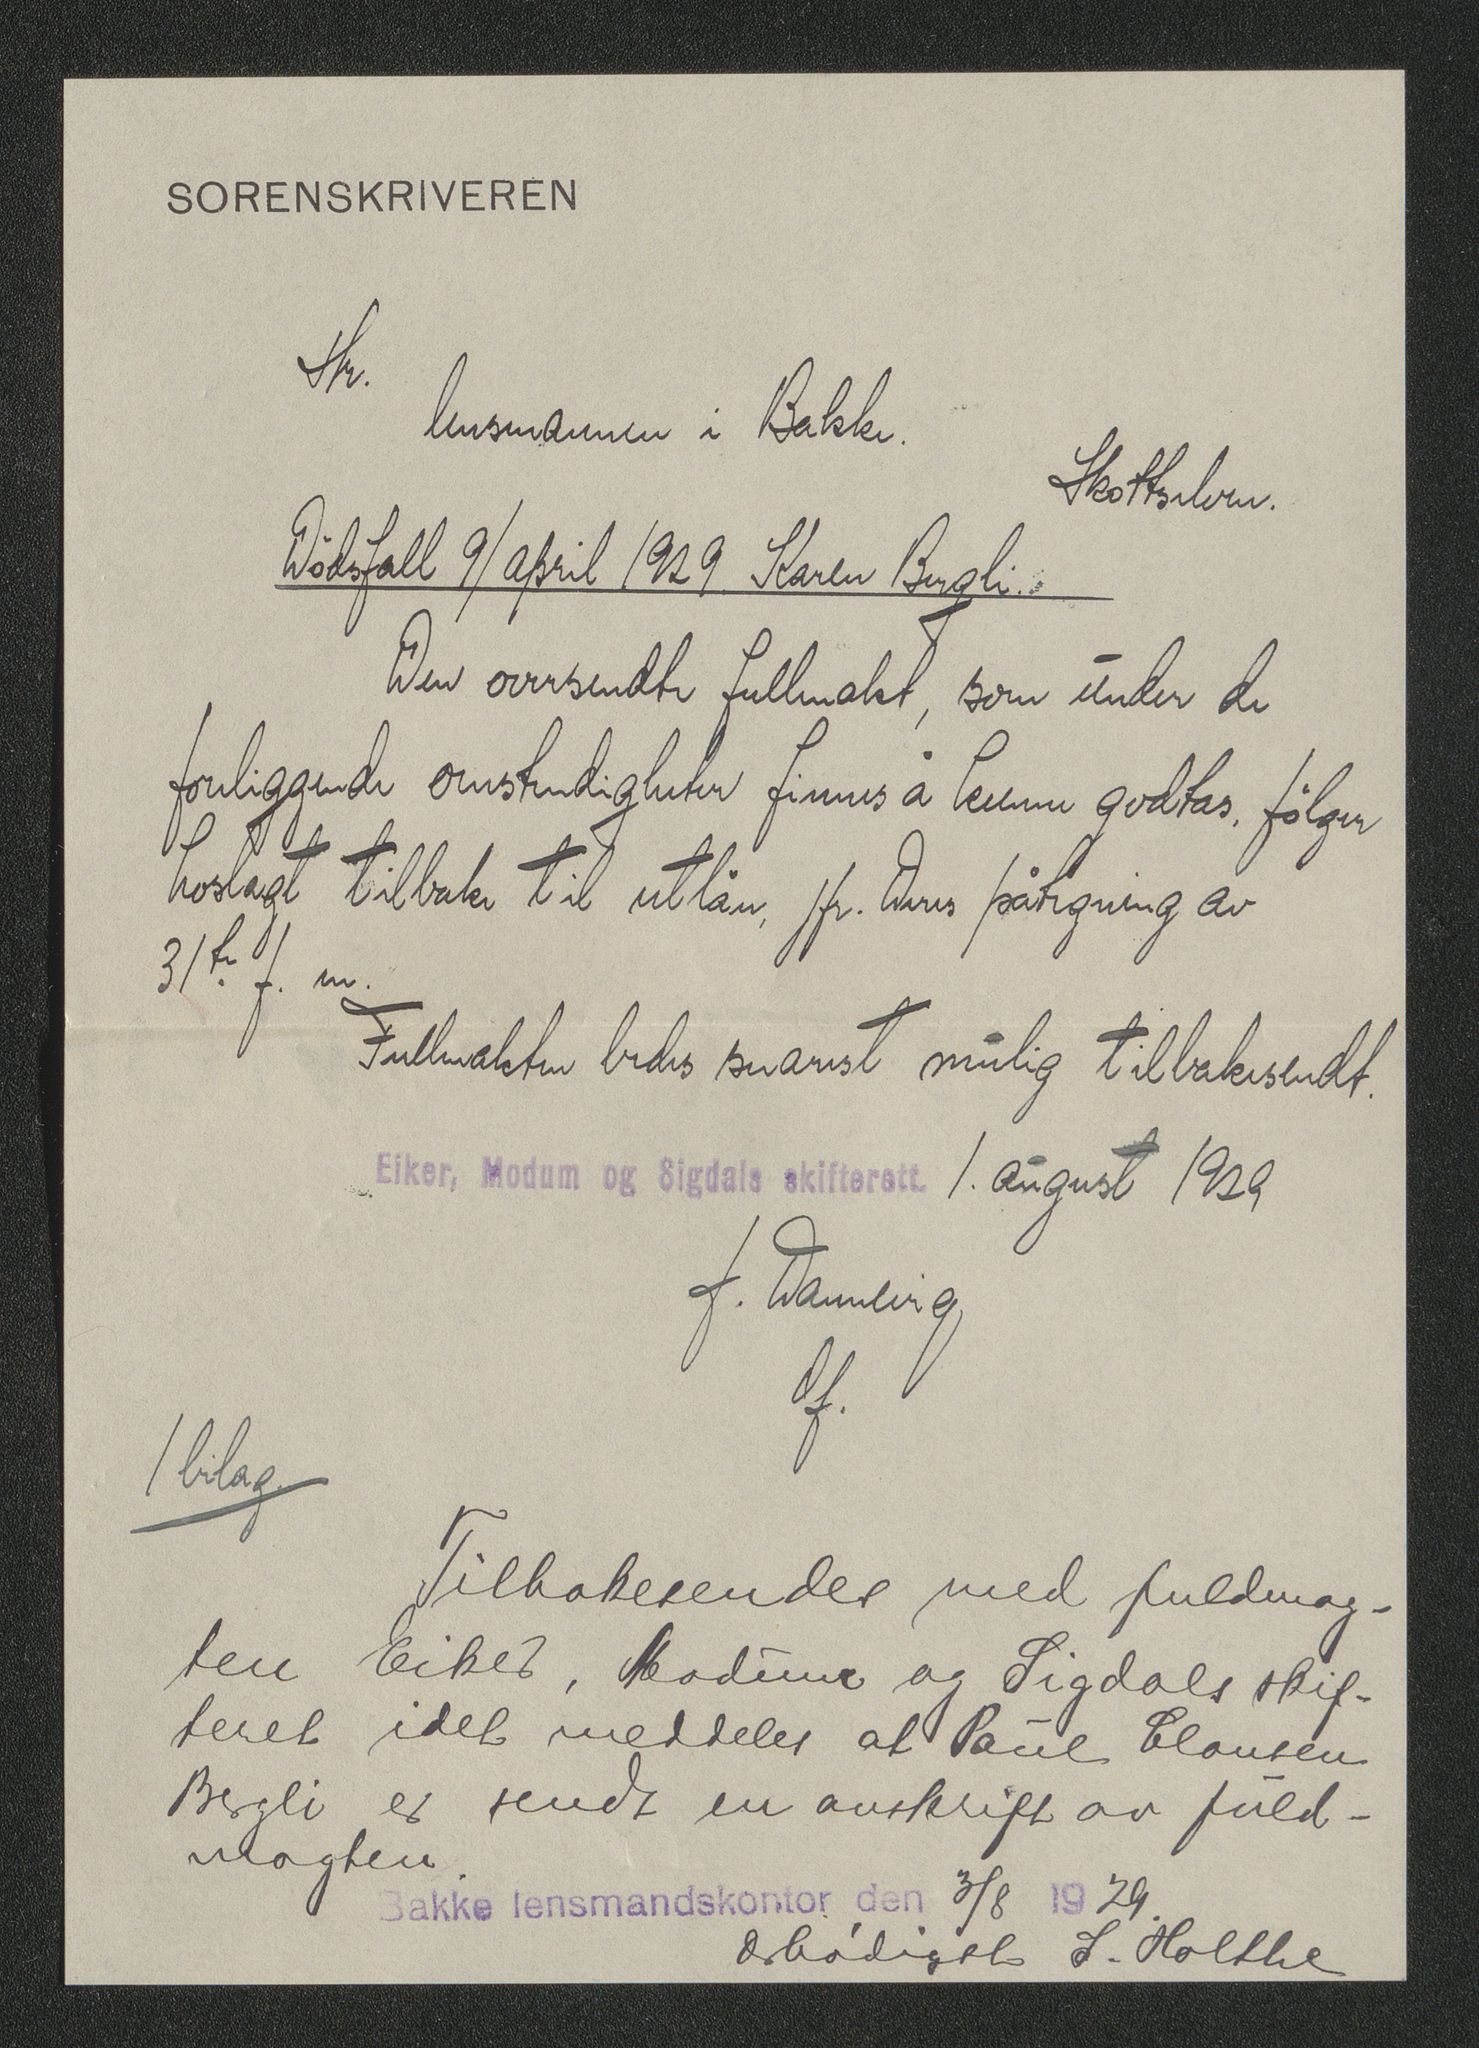 SORENSKRIVEREN
Hr.
lensmannen i Bakke.
Skottselven.
Dödsfall 9/april 1929 Karen Bergli.
Den oversendte fullmakt, som under de
foreliggende omstendigheter finnes å kunne godtas, fölger
hoslagt tilbake til utlån, jfr. Deres påtegning av
31te f. m.
Fullmakten bedes snarest mulig tilbakesendt.
Eiker, Modum og Sigdals skifterett. 1. august 1929
f.
1 bilag
Tilbakesendes med fuldmag-
ten Eiker, Modum og Sigdals skif-
teret idet meddeles at Paul Clausen
Bergli er sendt en avskrift av fuld-
magten.
Bakke lensmandskontor den 3/8 1929.
ærbödigst S. Holthe